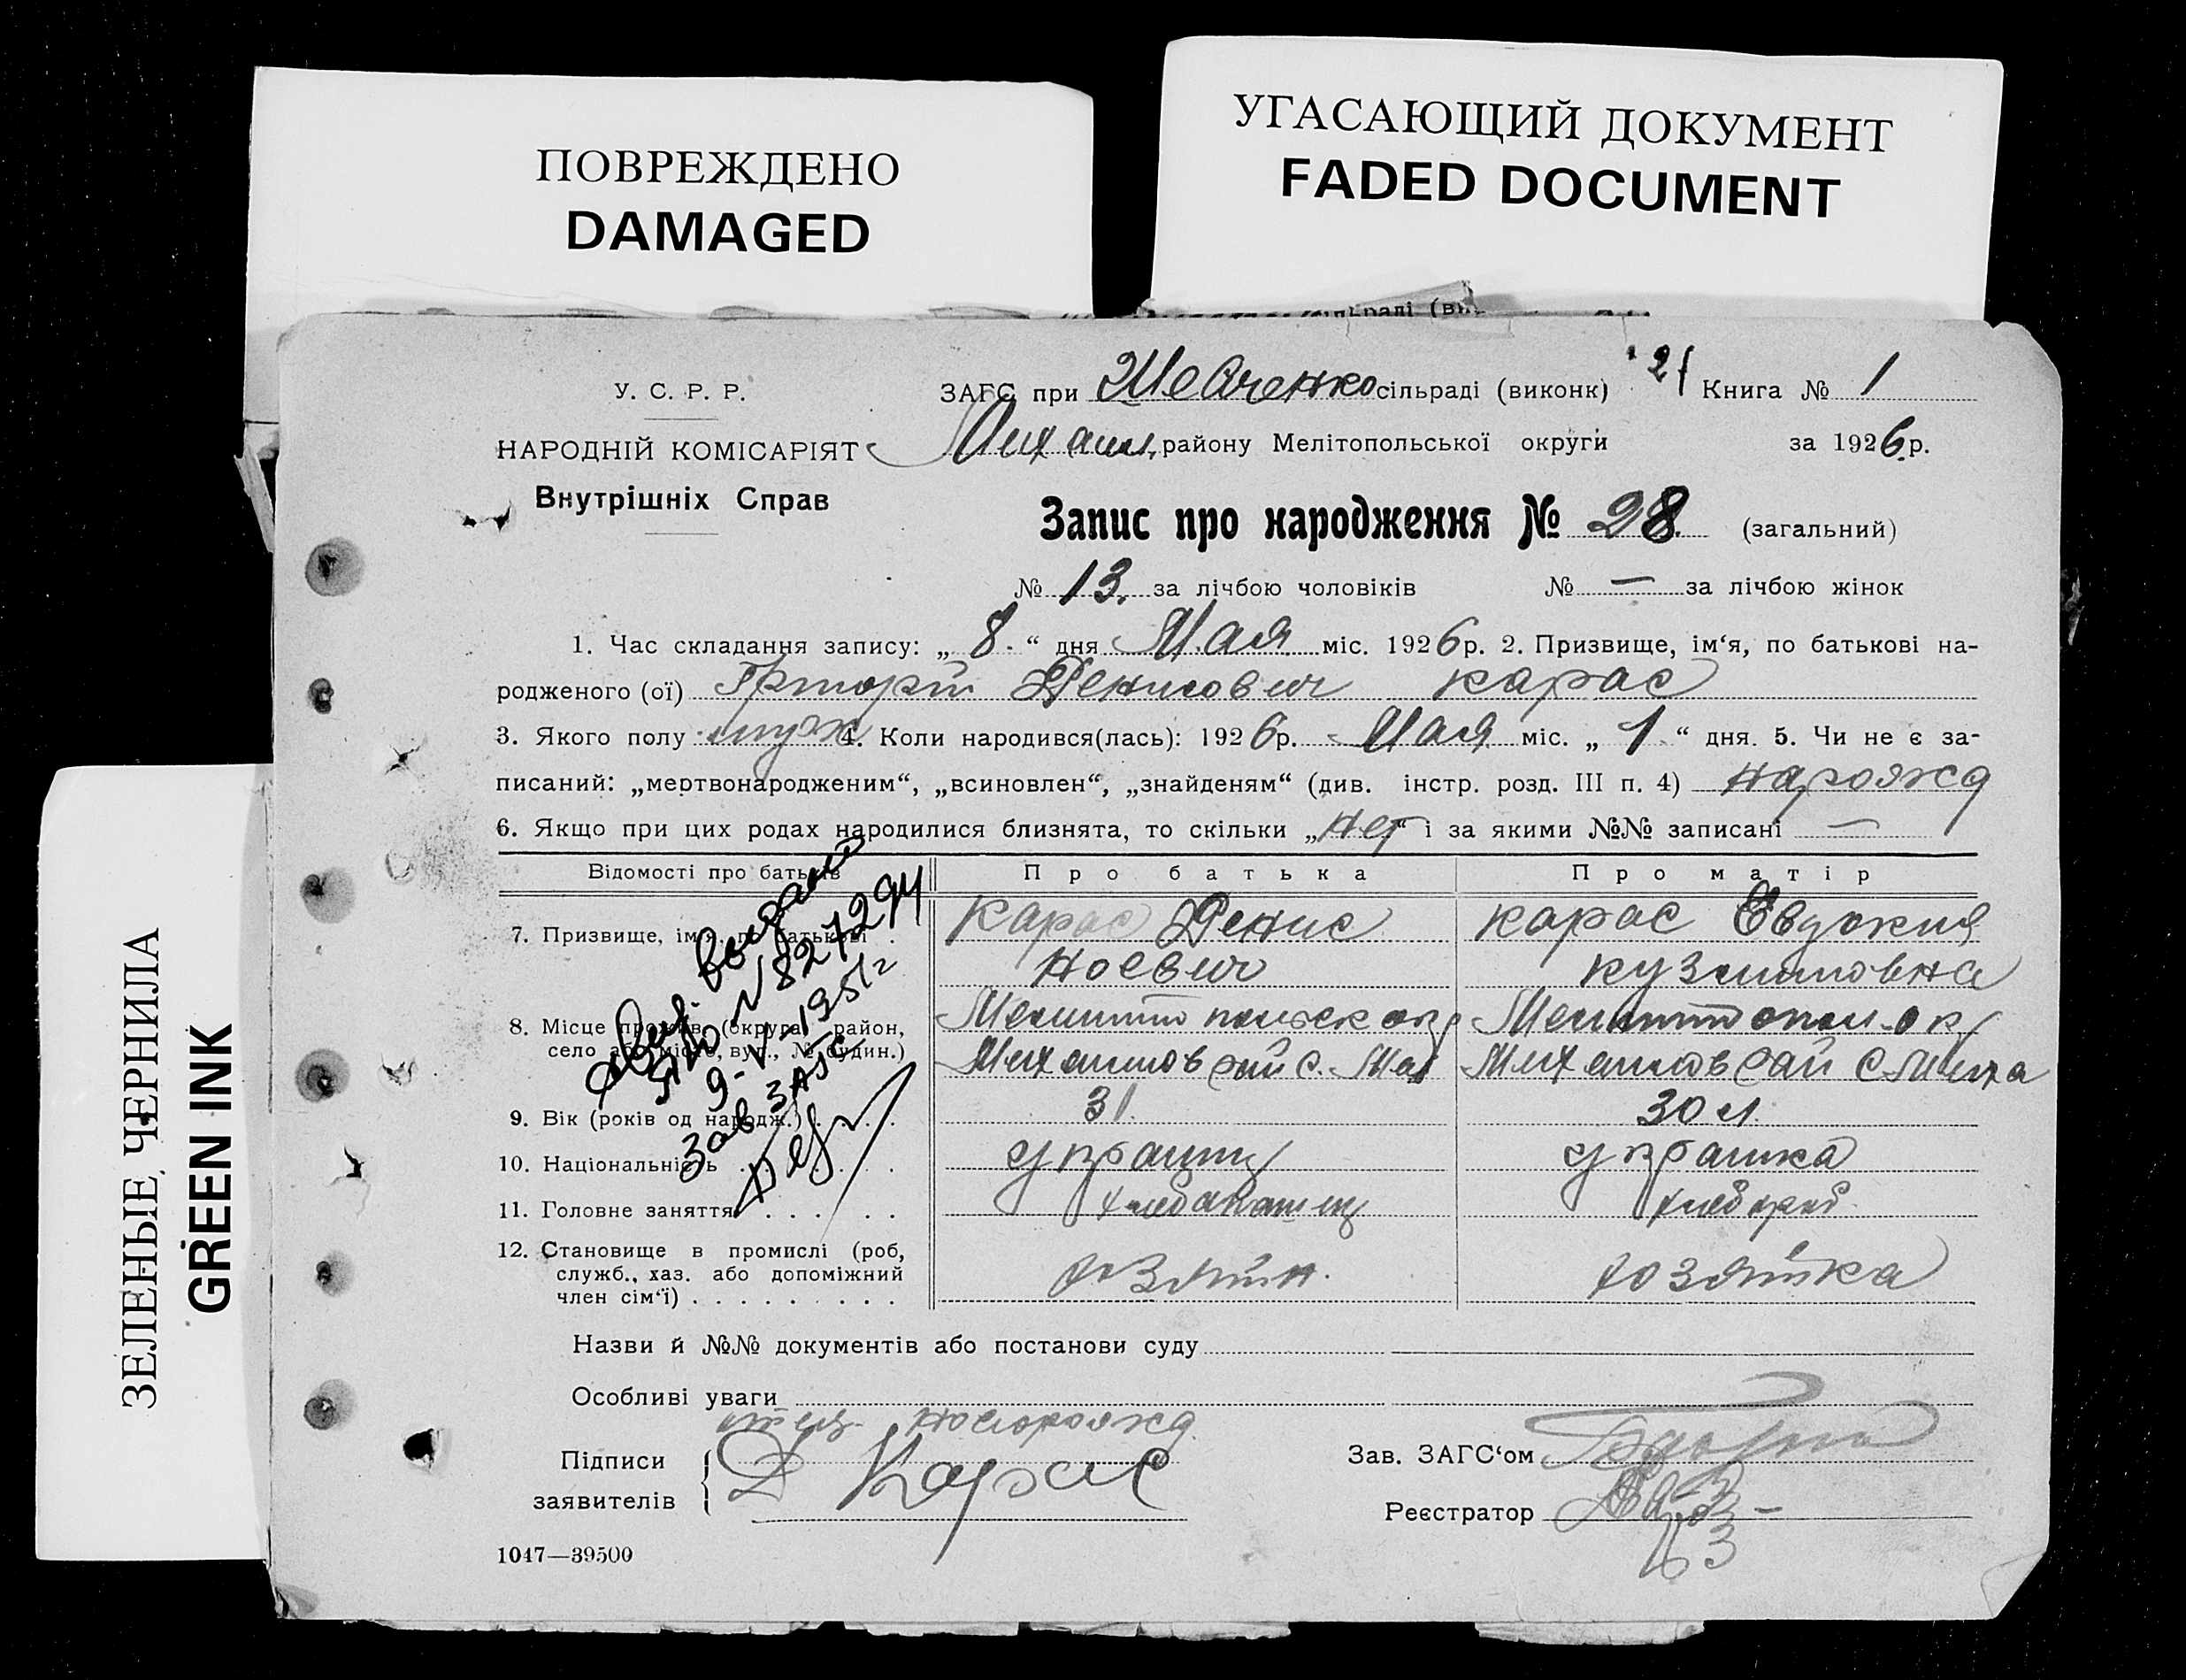 ПОВРЕЖДЕНО
DAMAGED
УГАСАЮЩИЙ ДОКУМЕНТ
FADED DOCUMENT
ЗЕЛЕНЫЕ ЧЕРНИЛА
GREEN INK
сільраді
У. С. Р. Р.
НАРОДНІЙ КОМІСАРІЯТ
Внутрішніх Справ
ЗАГС при Шевченко сільраді (виконк) 21 Книга № 1
Михайл. району Мелітопольської округи за 1926 р.
Запис про народження № 28. (загальний)
№ 13. за лічбою чоловіків № — за лічбою жінок
1. Час складання запису: „ 8. “ дня Мая міс. 1926 р. 2. Призвище, ім‘я, по батькові на-
родженого (ої) Григорій Денисович Карас
3. Якого полу муж 4. Коли народився(лась): 1926 р. Мая міс. „ 1. “ дня. 5. Чи не є за-
писаний: „мертвонародженим“, „всиновлен“, „знайденям“ (див. інстр. розд. III п. 4) нарожд
6. Якщо при цих родах народилися близнята, то скільки „нет“ і за якими №№ записані —
Відомості про батьків Про батька Про матір
7. Призвище, ім‘я, по батькові . Карас Денис Карас Евдокия
Ноевич Кузминовна
8. Місце прожив. (округа, район,
село або місто, вул., № будин.)
Михайлов рай с. Мих Михайлов рай с Миха
9. Вік (років од народж.) . . . . 31. 30 л.
10. Національність . . . . украинц украинка
11. Головне заняття . . . . . хлебопашец хлебороб.
12. Становище в промислі (роб,
служб., хаз. або допоміжний
член сім‘ї) . . . . . . . . . хозяин. хозяйка
выдано
№ 827294
9-VI-1951 г
Зав ЗАГС
Назви й №№ документів або постанови суду
Особливі уваги
отец новорожд.
Підписи
заявителів
Д Карас
Зав. ЗАГС‘ом
Реєстратор
1047—39500